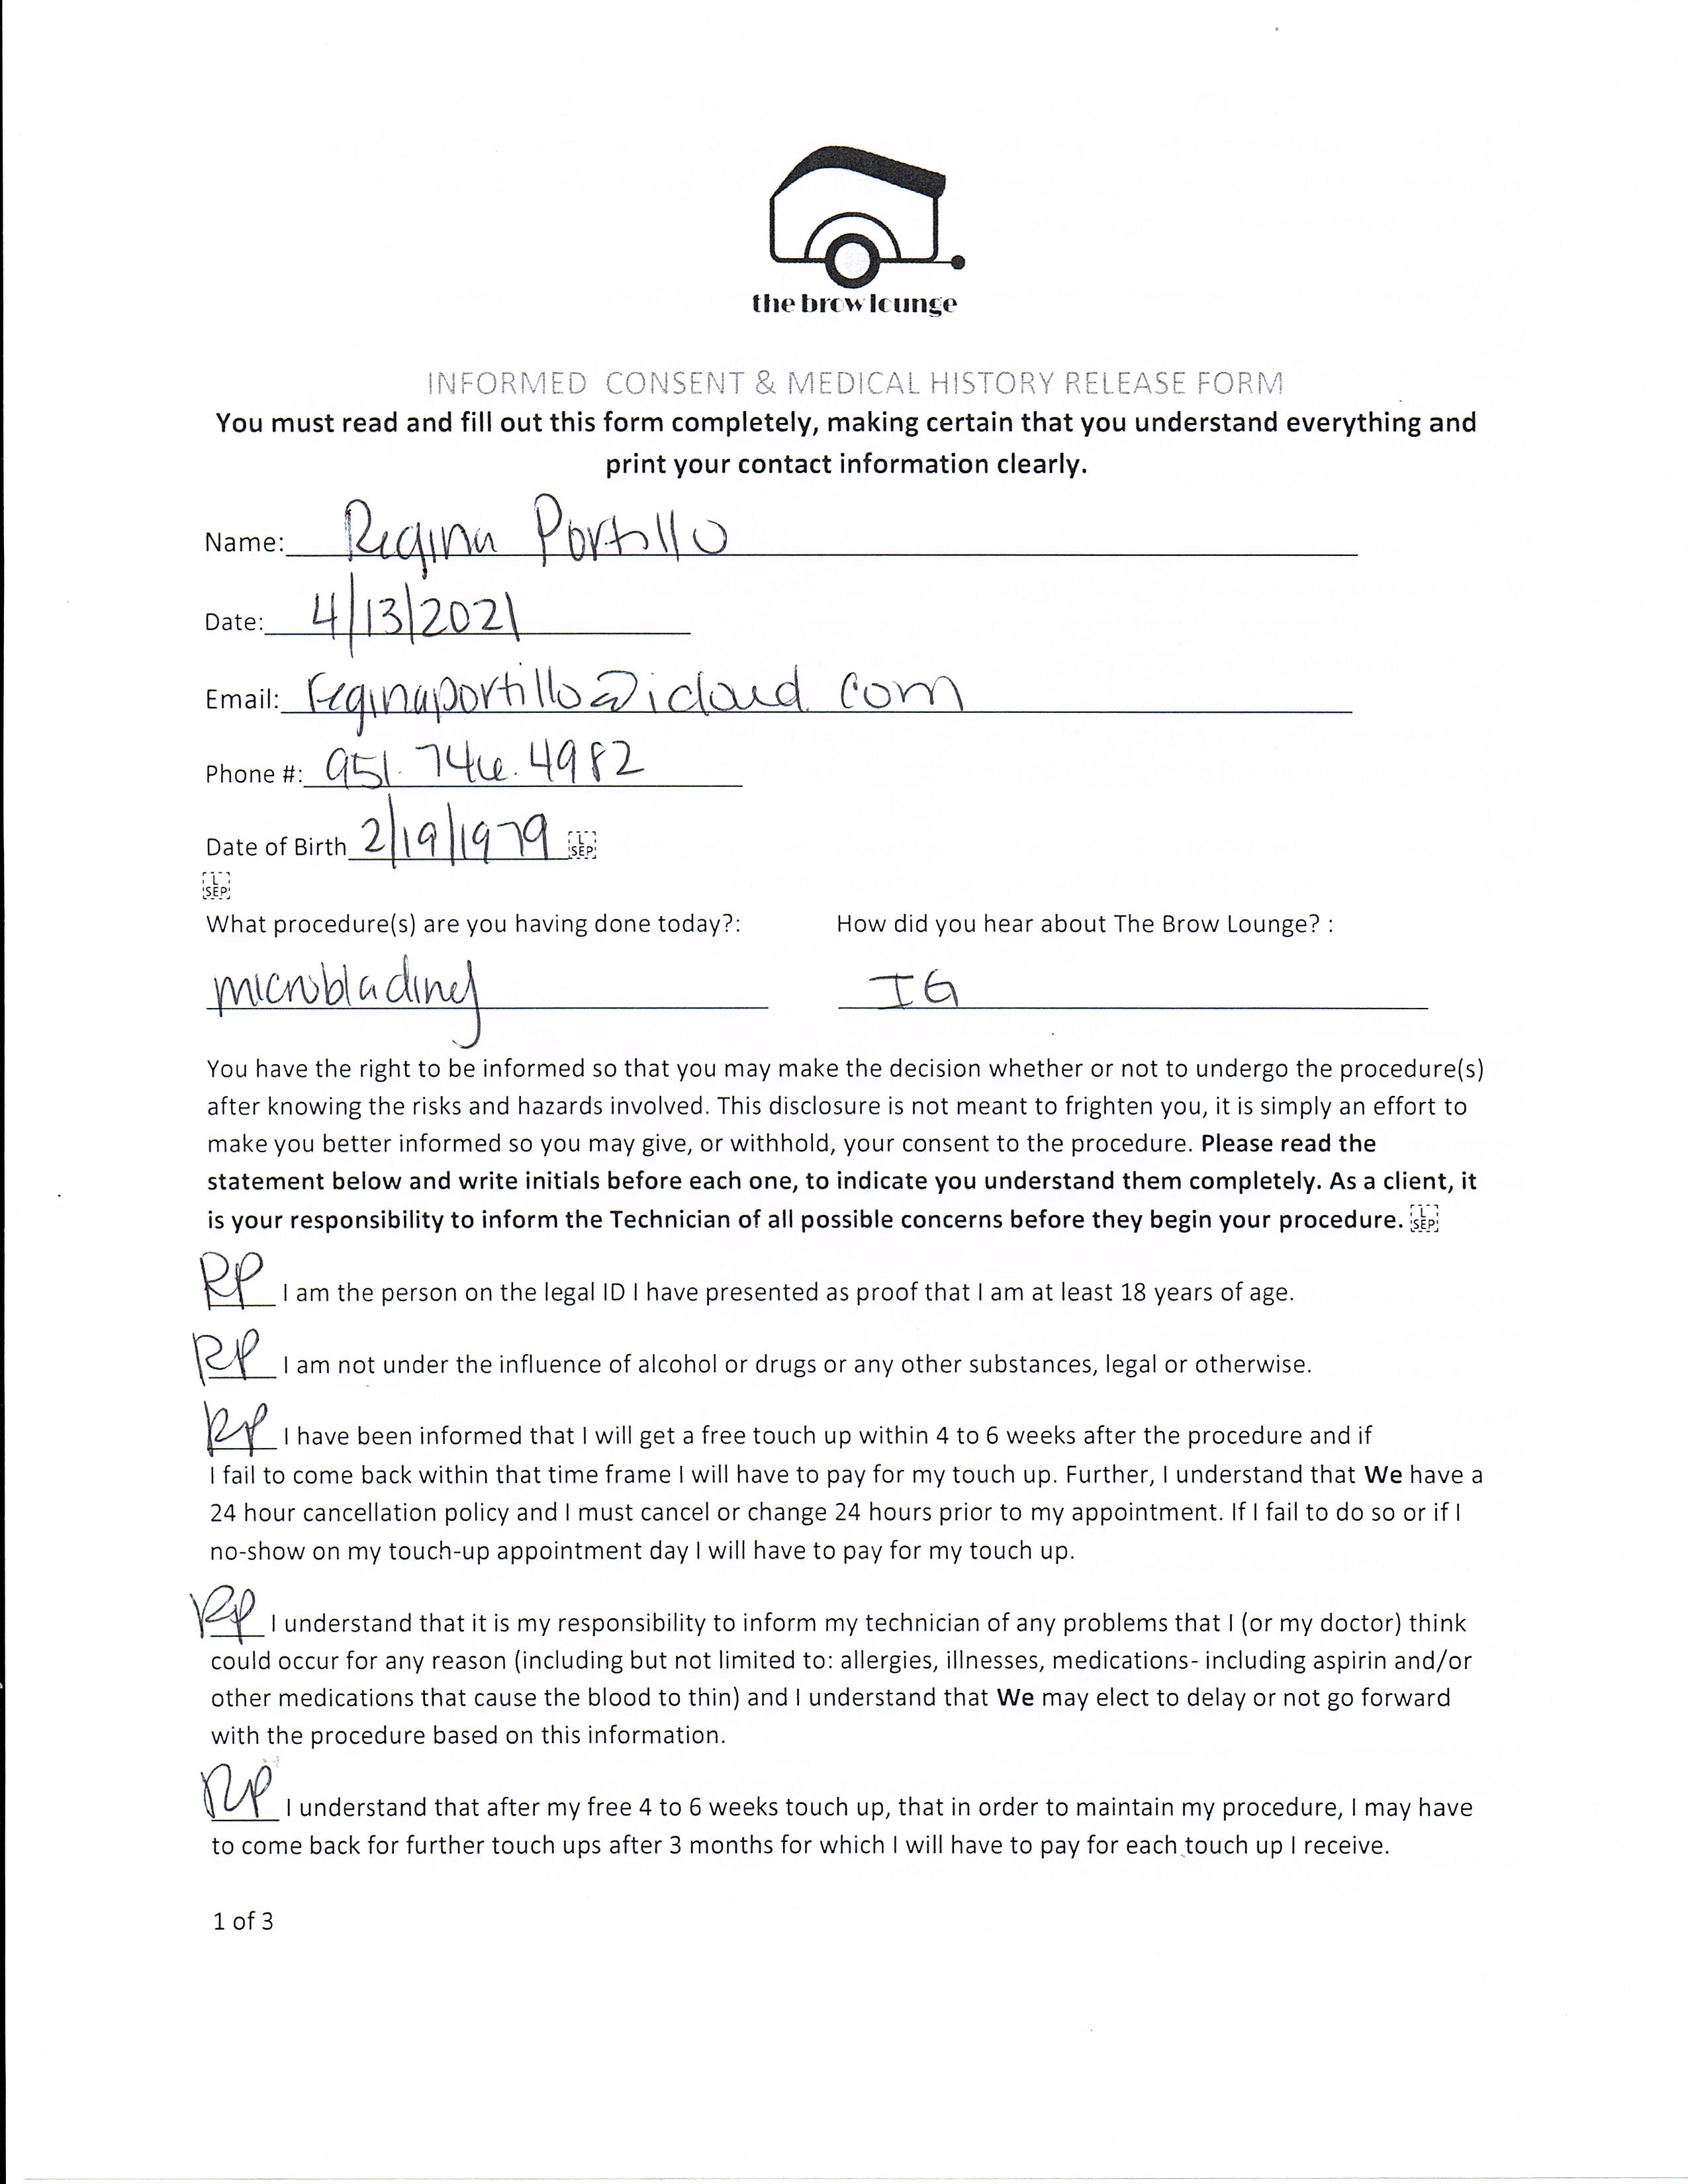 the brow lounge
INFORMED CONSENT & MEDICAL HISTORY RELEASE FORM
You must read and fill out this form completely, making certain that you understand everything and
print your contact information clearly.
Name: Regina Portillo
Date: 4/13/2021
Email: reginaportillo@icloud.com
Phone #: 951.746.4982
Date of Birth 2/19/1979 L SEP
L SEP
What procedure(s) are you having done today?: How did you hear about The Brow Lounge? :
microblading IG
You have the right to be informed so that you may make the decision whether or not to undergo the procedure(s)
after knowing the risks and hazards involved. This disclosure is not meant to frighten you, it is simply an effort to
make you better informed so you may give, or withhold, your consent to the procedure. Please read the
statement below and write initials before each one, to indicate you understand them completely. As a client, it
is your responsibility to inform the Technician of all possible concerns before they begin your procedure. L SEP
RP I am the person on the legal ID I have presented as proof that I am at least 18 years of age.
RP I am not under the influence of alcohol or drugs or any other substances, legal or otherwise.
RP I have been informed that I will get a free touch up within 4 to 6 weeks after the procedure and if
I fail to come back within that time frame I will have to pay for my touch up. Further, I understand that We have a
24 hour cancellation policy and I must cancel or change 24 hours prior to my appointment. If I fail to do so or if I
no-show on my touch-up appointment day I will have to pay for my touch up.
RP I understand that it is my responsibility to inform my technician of any problems that I (or my doctor) think
could occur for any reason (including but not limited to: allergies, illnesses, medications- including aspirin and/or
other medications that cause the blood to thin) and I understand that We may elect to delay or not go forward
with the procedure based on this information.
RP I understand that after my free 4 to 6 weeks touch up, that in order to maintain my procedure, I may have
to come back for further touch ups after 3 months for which I will have to pay for each touch up I receive.
1 of 3